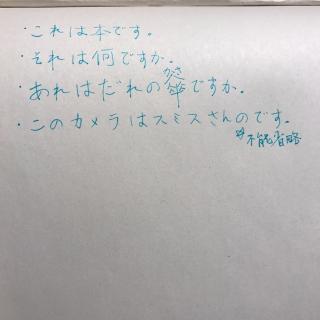 ・これは本です。
・それは何ですか。
・あれはだれの傘ですか。
かさ
・このカメラはスミスさんのです。
不能省略